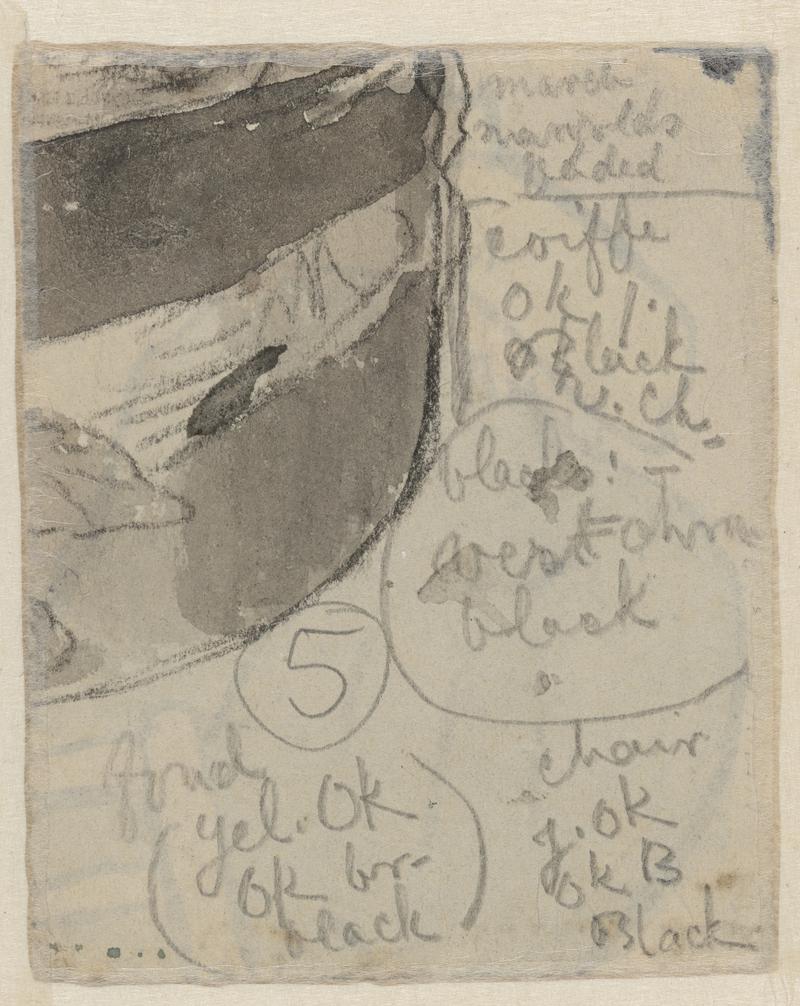 march
marigolds
faded
coiffe
ok j.
Black
N. Ch.
blacks: -
west ohm
black
5
fond
yel. Ok
ok br-
black
chair
y. ok
ok B
Black